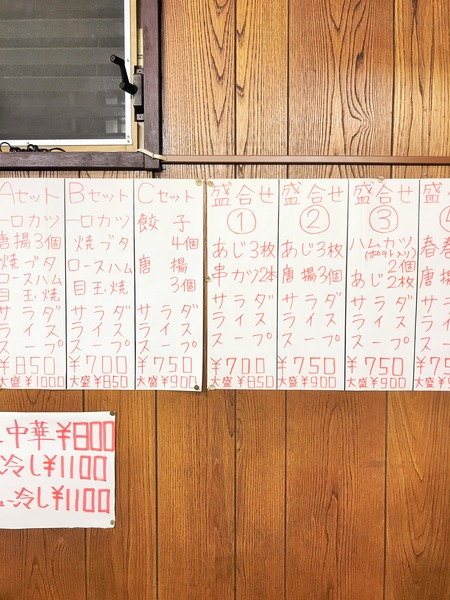 Aセット
一口カツ
唐揚3個
焼ブタ
ロースハム
目玉焼
サラダ
ライス
スープ
¥850
大盛¥1000
Bセット
一口カツ
焼ブタ
ロースハム
目玉焼
サラダ
ライス
スープ
¥700
大盛¥850
Cセット
餃子
4個
唐揚
3個
サラダ
ライス
スープ
¥750
大盛¥900
盛合せ
①
あじ3枚
串カツ2本
サラダ
ライス
スープ
¥700
大盛¥850
盛合せ
②
あじ3枚
唐揚3個
サラダ
ライス
スープ
¥750
大盛¥900
盛合せ
③
ハムカツ
(ポテト入り)
2個
あじ2枚
サラダ
ライス
スープ
¥750
大盛¥900
盛
春巻
唐揚
サラ
ライ
スー
¥75
大盛
中華¥800
冷し¥1100
冷し¥1100